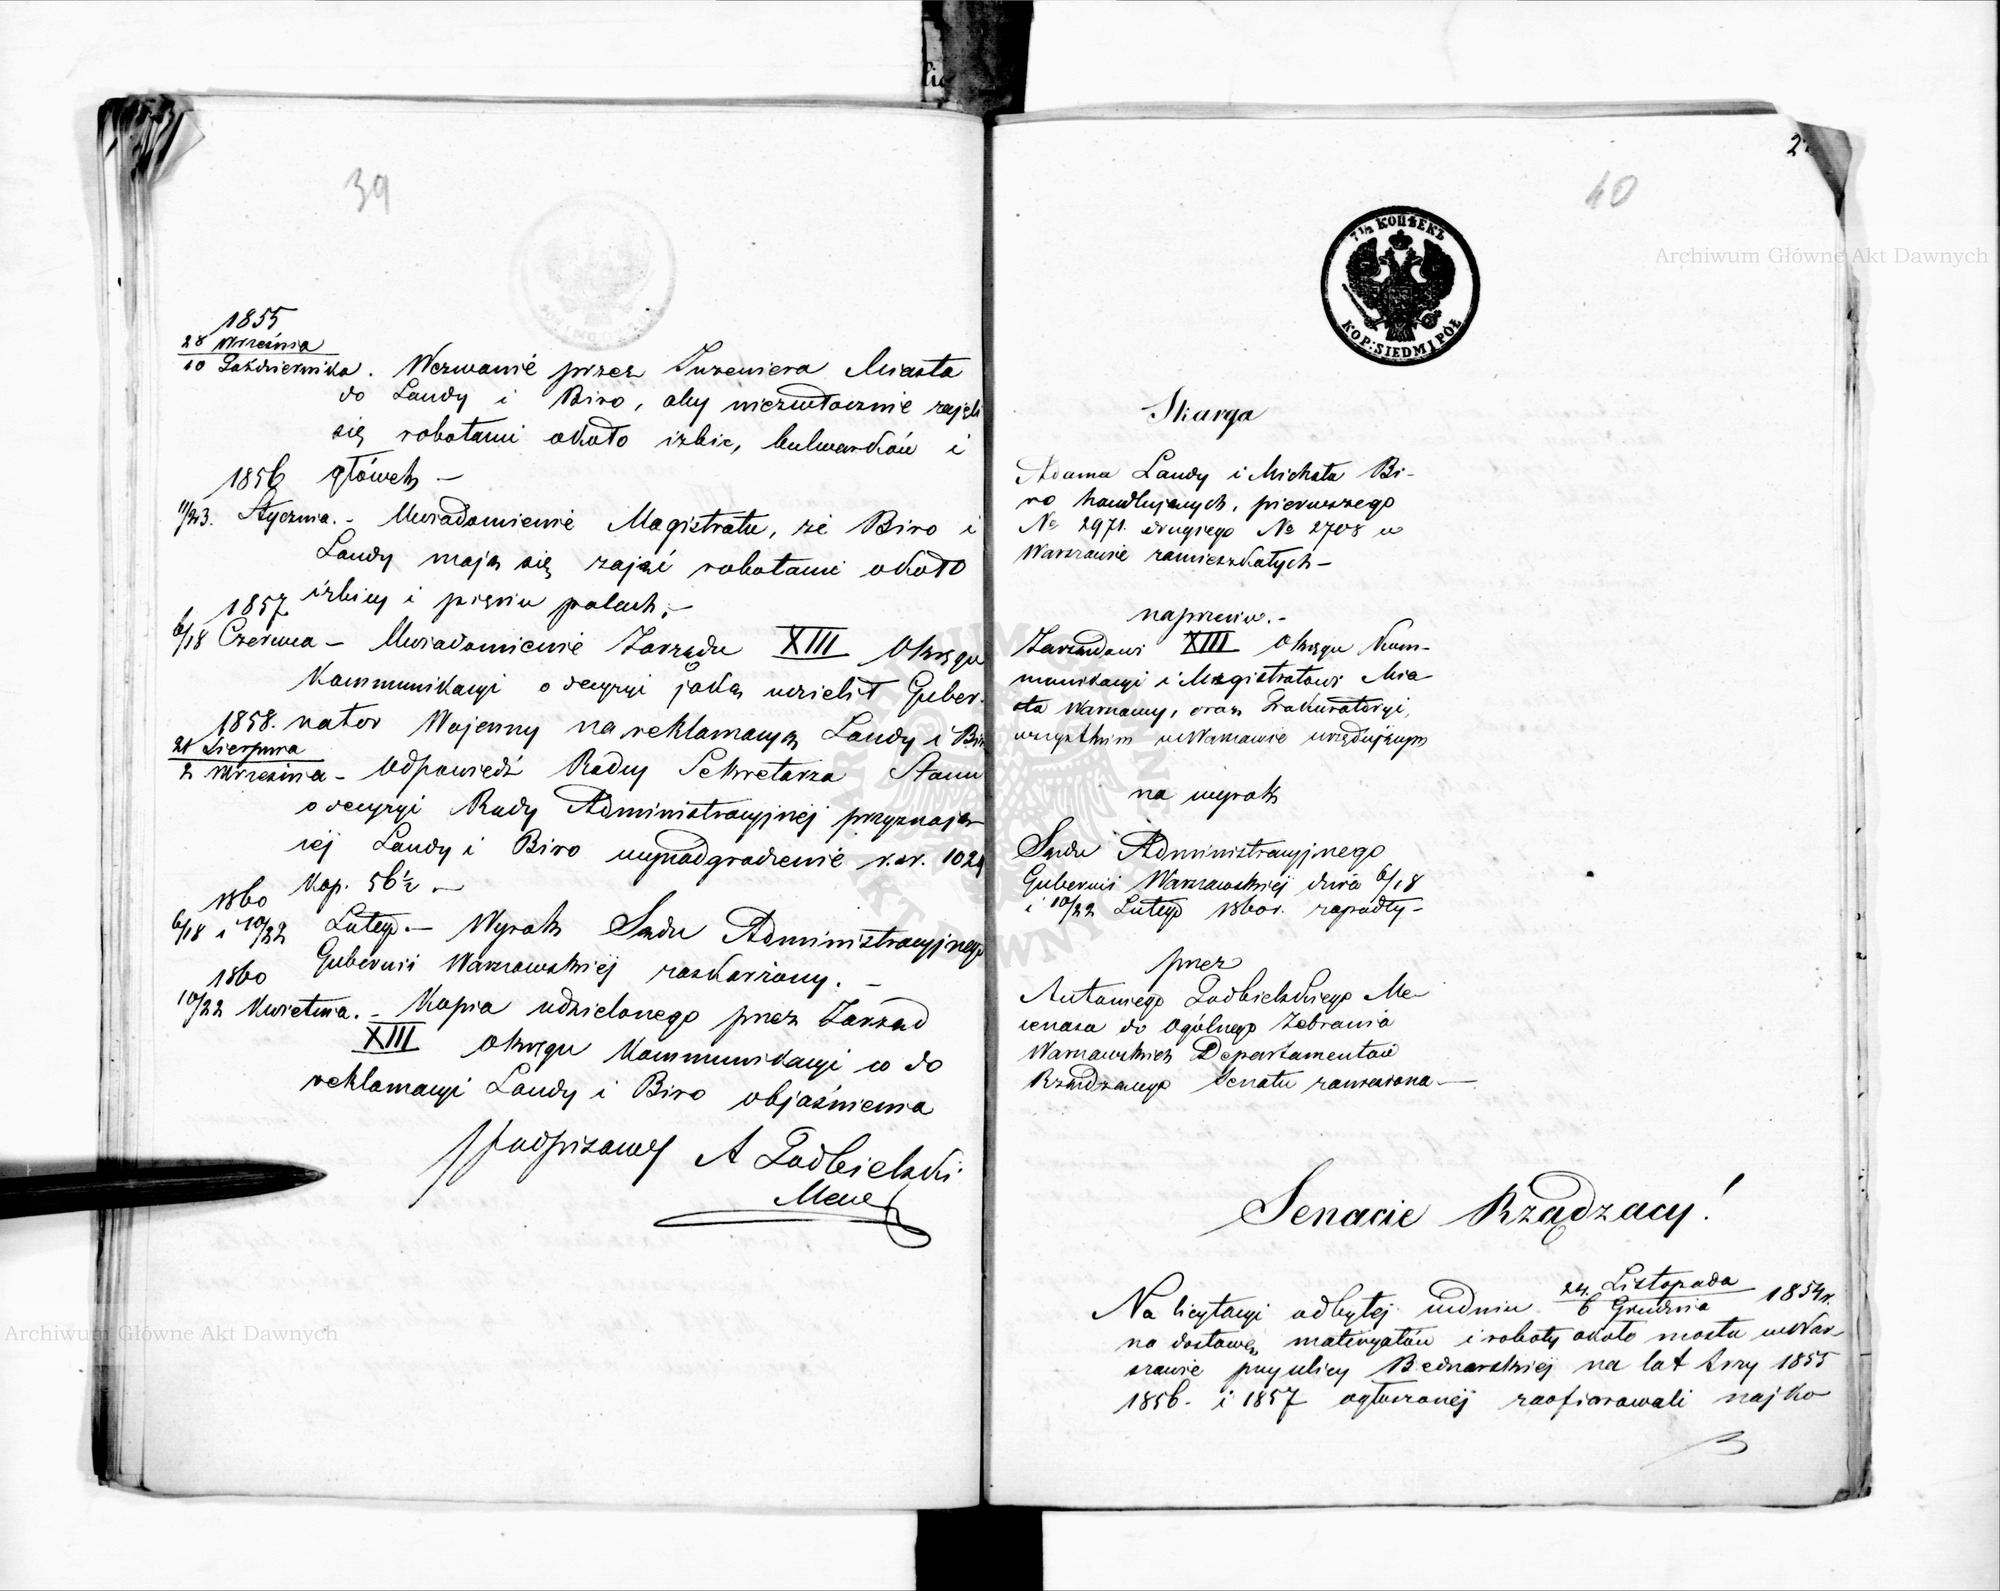 39
1855
28 Września
10 Października. Wezwanie przez Inzeniera Miasta
do Landy i Biro, aby niezwłocznie zajęli
się robotami około izbic, bulwarków i
1856 główek —
11/23. Stycznia. - Uwiadomienie Magistratu, że Biro i
Landy mają się zająć robotami około
1857 izbicy i pięciu palach, —
6/18 Czerwca — Uwiadomienie Zarządu XIII Okręgu
Kommunikacyi o decyzyi jaką udzielił Guber-
1858. nator Wojenny na reklamacyą Landy i Biro
21 Sierpnia
2 Września - Odpowiedź Rady Sekretarza Stanu
o decyzyi Rady Administracyjnéj przyznają
céj Landy i Biro wynadgrodzenie r.sr. 1024
Kop. 56½ —
1860
6/18 i 10/22 Lutego. — Wyrok Sądu Administracyjnego
Gubernii Warszawskiéj zaskarżony. —
1860
10/22 Kwietnia. - Kopia udzielonego przez Zarząd
XIII Okręgu Kommunikacyi co do
reklamacyi Landy i Biro objaśnienia
/podpisany/ A Podbielski
Mece
40
7½ КОПѢЕКЪ
KOP: SIEDM I PÓŁ
Skarga
Adama Landy i Michała Bi-
ro handlujących, pierwszego
No 2971. drugiego No 2708 w
Warszawie zamieszkałych —
naprzeciw. -
Zarządowi XIII Okręgu Kom-
munikacyi i Magistratowi Mia
sta Warszawy, oraz Prokuratoryi,
wszystkim w Warszawie urzędującym
na wyrok
Sądu Administracyjnego
Gubernii Warszawskiéj dnia 6/18
i 10/22 Lutego 1860r. zapadły —
przez
Antoniego Podbielskiego Me-
cenasa do Ogólnego Zebrania
Warszawskich Departamentów
Rządzącego Senatu zaniesiona —
Senacie Rządzący!
Na licytacyi odbytéj wdniu 24 Listopada / 6 Grudnia 1854r.
na dostawę materyałów i roboty około mostu w War-
szawie przy ulicy Bednarskiéj na lat trzy 1855
1856. i 1857 ogłoszonéj zaofiarowali najko
Archiwum Główne Akt Dawnych
Archiwum Główne Akt Dawnych